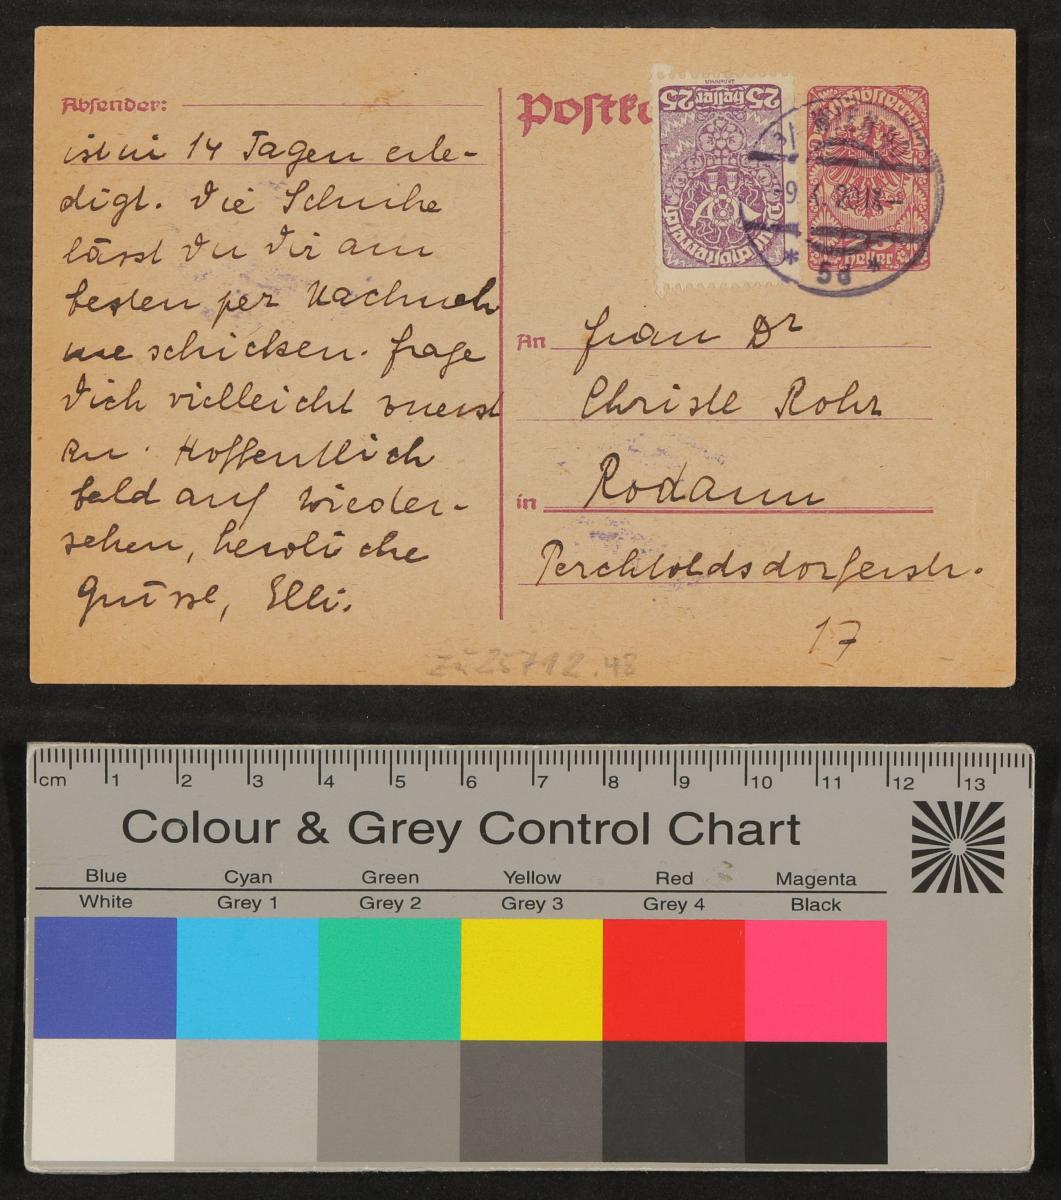 Absender:
ist in 14 Tagen erle-
digt. Die Schuhe
lässt Du Dir am
besten per Nachneh
me schicken. frage
Dich vielleicht zuerst
an. Hoffentlich
bald auf wieder-
sehen, herzliche
Grüsse, Elli.
Postk
25 heller 25
Deutschösterreich
heller
An Frau Dr
Christl Rohr
in Rodaun
Perchtoldsdorferstr.
17
zu 25712.48
cm 1 2 3 4 5 6 7 8 9 10 11 12 13
Colour & Grey Control Chart
Blue Cyan Green Yellow Red Magenta
White Grey 1 Grey 2 Grey 3 Grey 4 Black